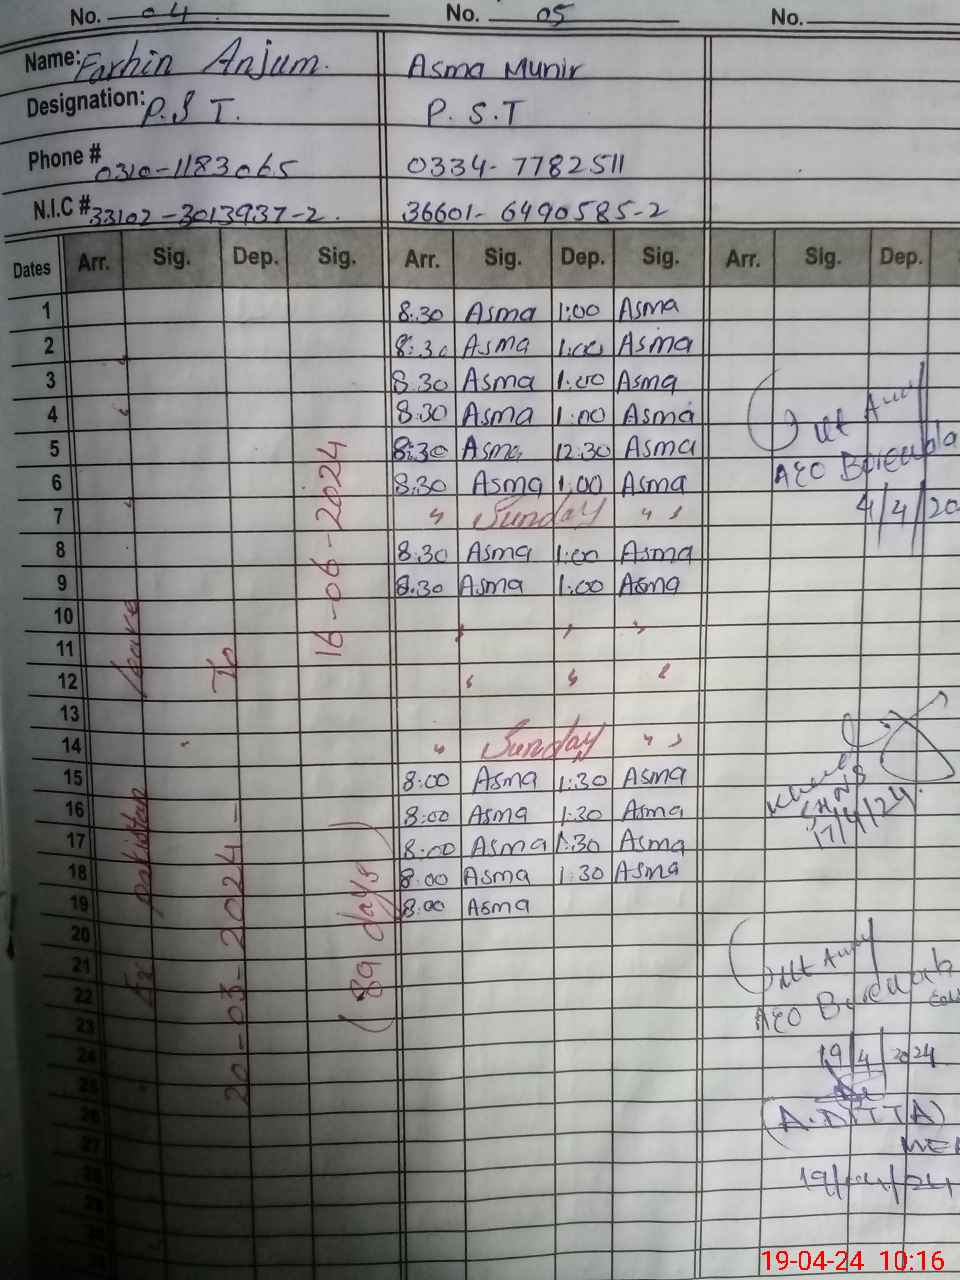 No. 04 No. 05 No.
Name: Farhin Anjum. Asma Munir
Designation: P.S.T. P.S.T
Phone # 0310-1183065 0334-7782511
N.I.C # 33102-3013937-2. 36601-6490585-2
Dates Arr. Sig. Dep. Sig. Arr. Sig. Dep. Sig. Arr. Sig. Dep.
1 8:30 Asma 1:00 Asma
2 8:30 Asma 1:00 Asma
3 8:30 Asma 1:00 Asma
4 8:30 Asma 1:00 Asma
5 8:30 Asma 12:30 Asma
6 8:30 Asma 1:00 Asma
7 " Sunday " "
8 8:30 Asma 1:00 Asma
9 8:30 Asma 1:00 Asma
10
11
12
13
14 " Sunday " "
15 8:00 Asma 1:30 Asma
16 8:00 Asma 1:30 Asma
17 8:00 Asma 1:30 Asma
18 8:00 Asma 1:30 Asma
19 8:00 Asma
20
21
22
23
24
25
26
27
28
29
pakistan leave
20-03-2024 - To
(89 days) 16-06-2024
AEO
4/4/20
17/4/24
AEO
19/4/2024
(A.DITTA)
MEA
19/04/24
19-04-24 10:16